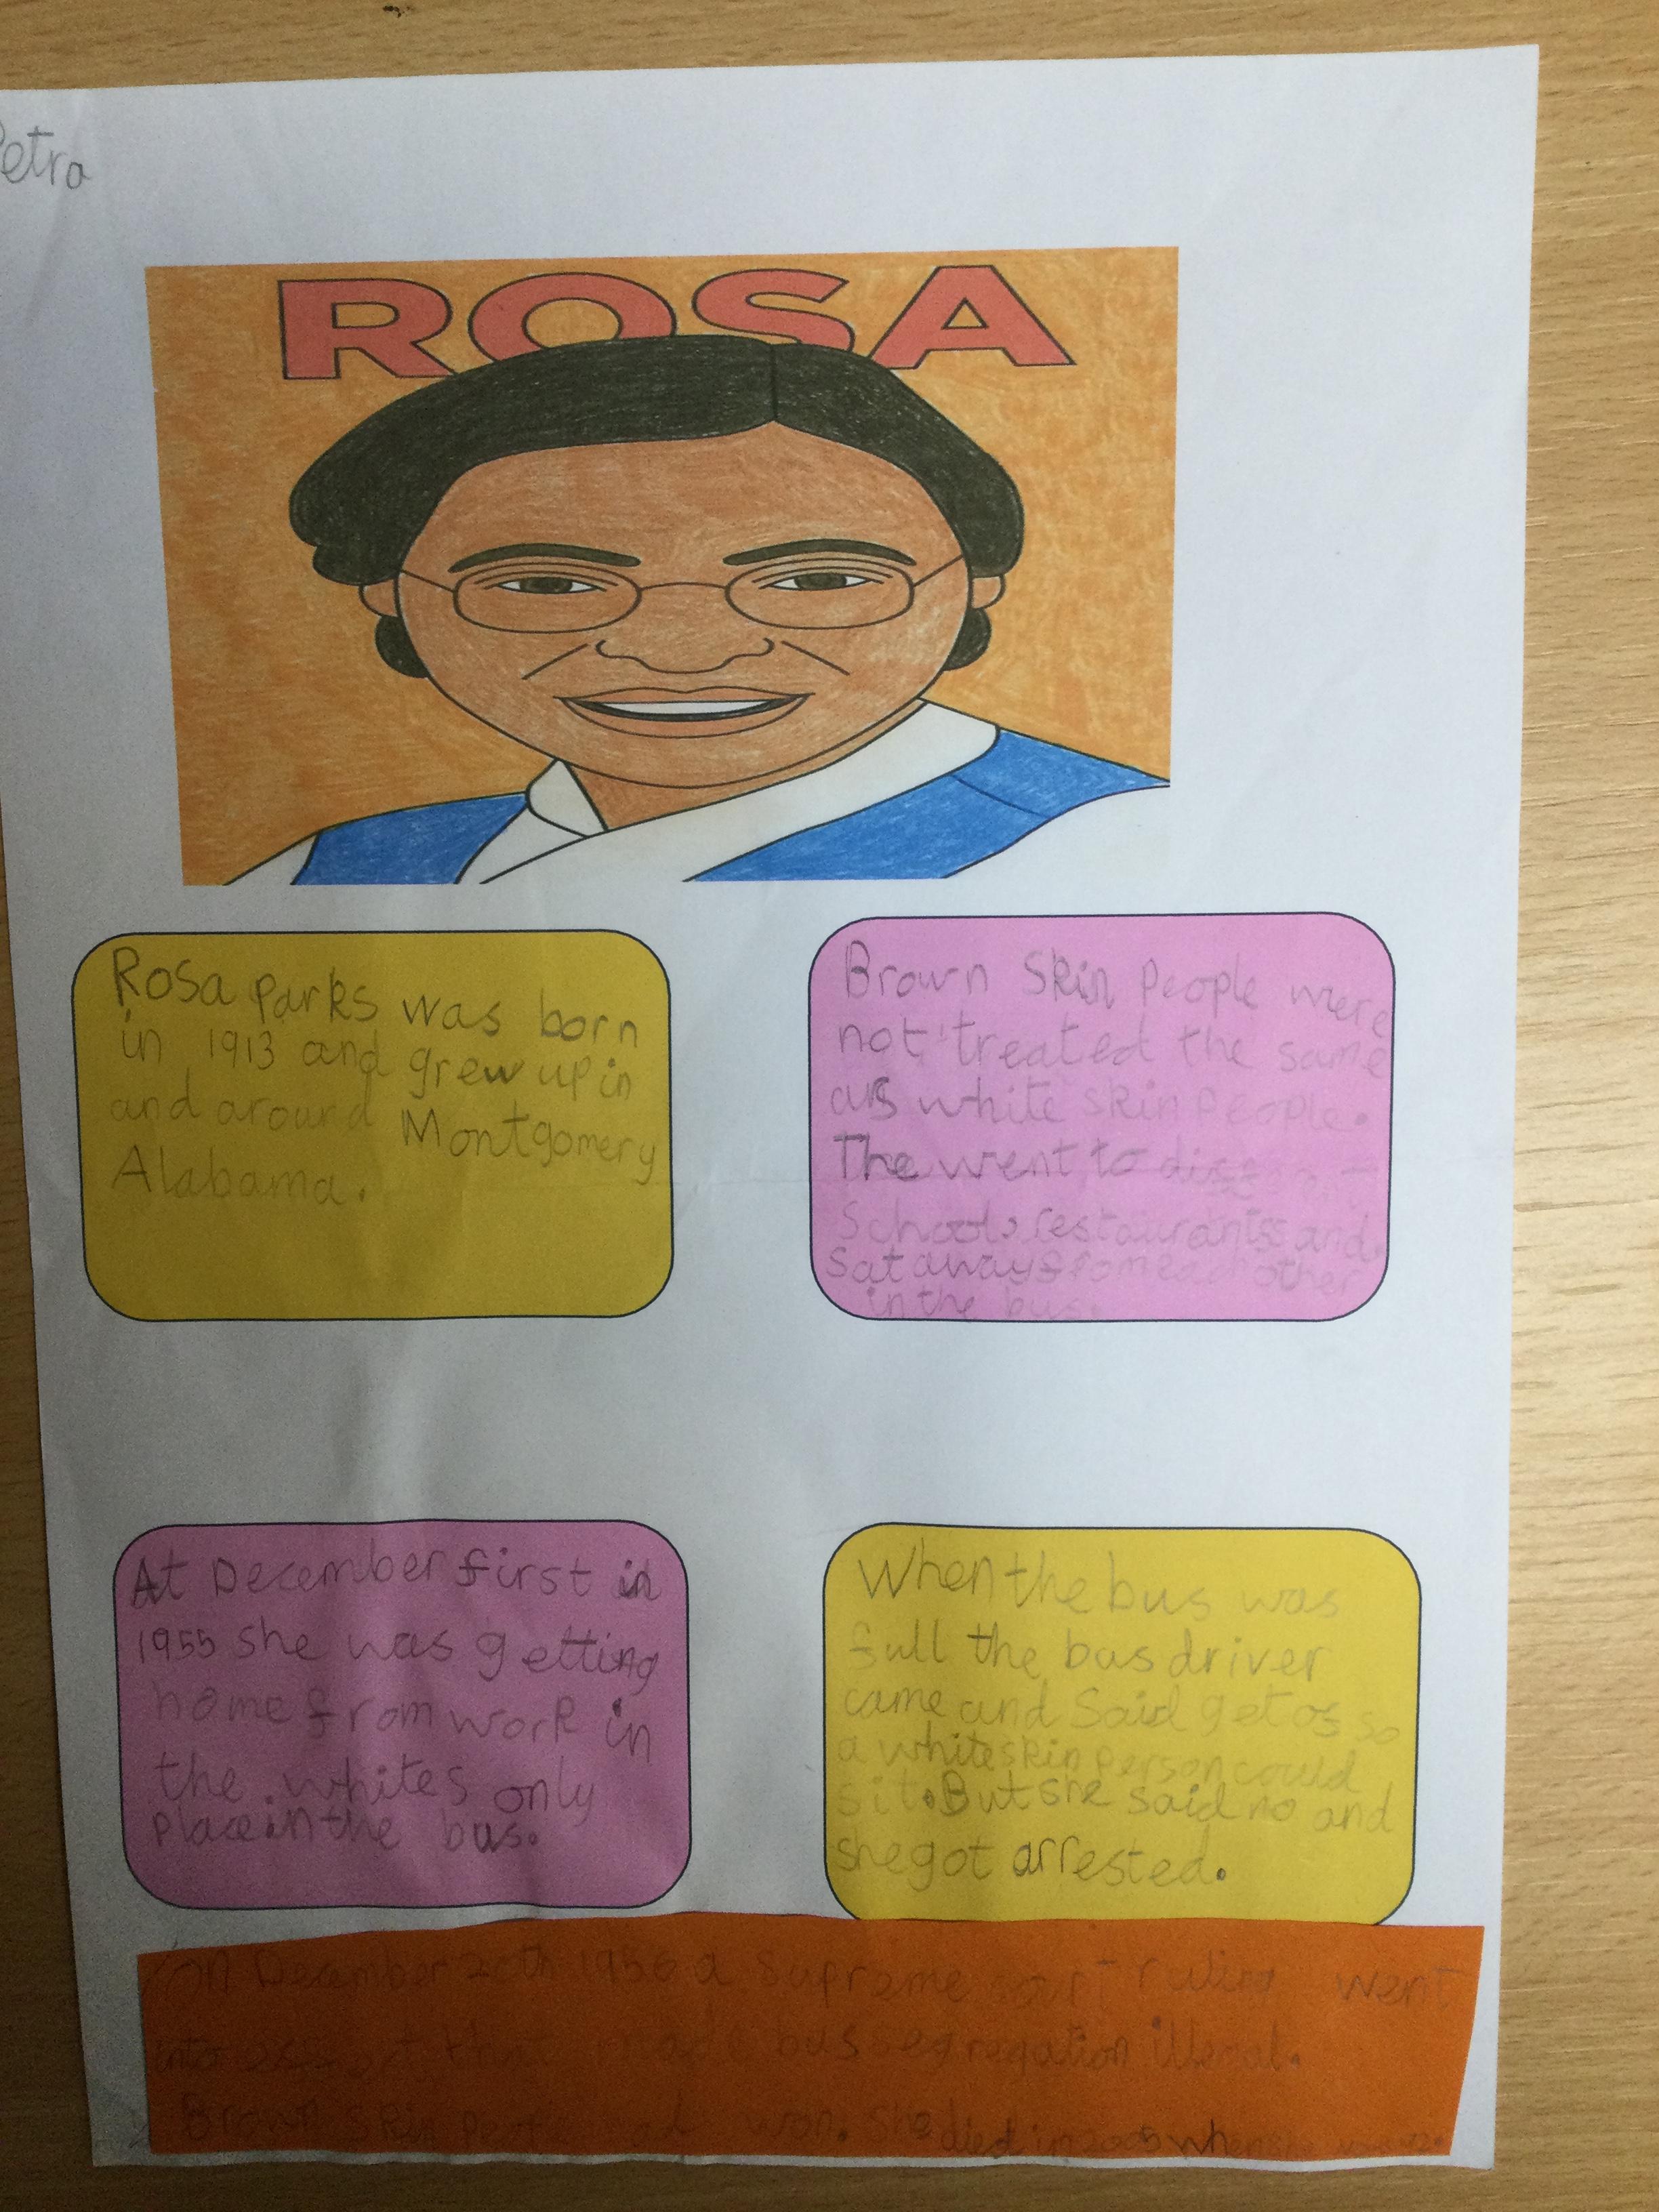 Petra
ROSA
Rosa parks was born
in 1913 and grew up in
and around Montgomery
Alabama.
Brown skin people were
not treated the same
as white skin people.
The went to
School, restaurants and
sat away from each other
in the bus.
At December first in
1955 she was getting
home from work in
the whites only
place in the bus.
When the bus was
full the bus driver
came and said get of so
a white skin person could
sit. But she said no and
she got arrested.
On December 20th 1956 a supreme court ruling went
into that made bus segregation illegal.
Brown skin won. She died in 2005 when she was 92.